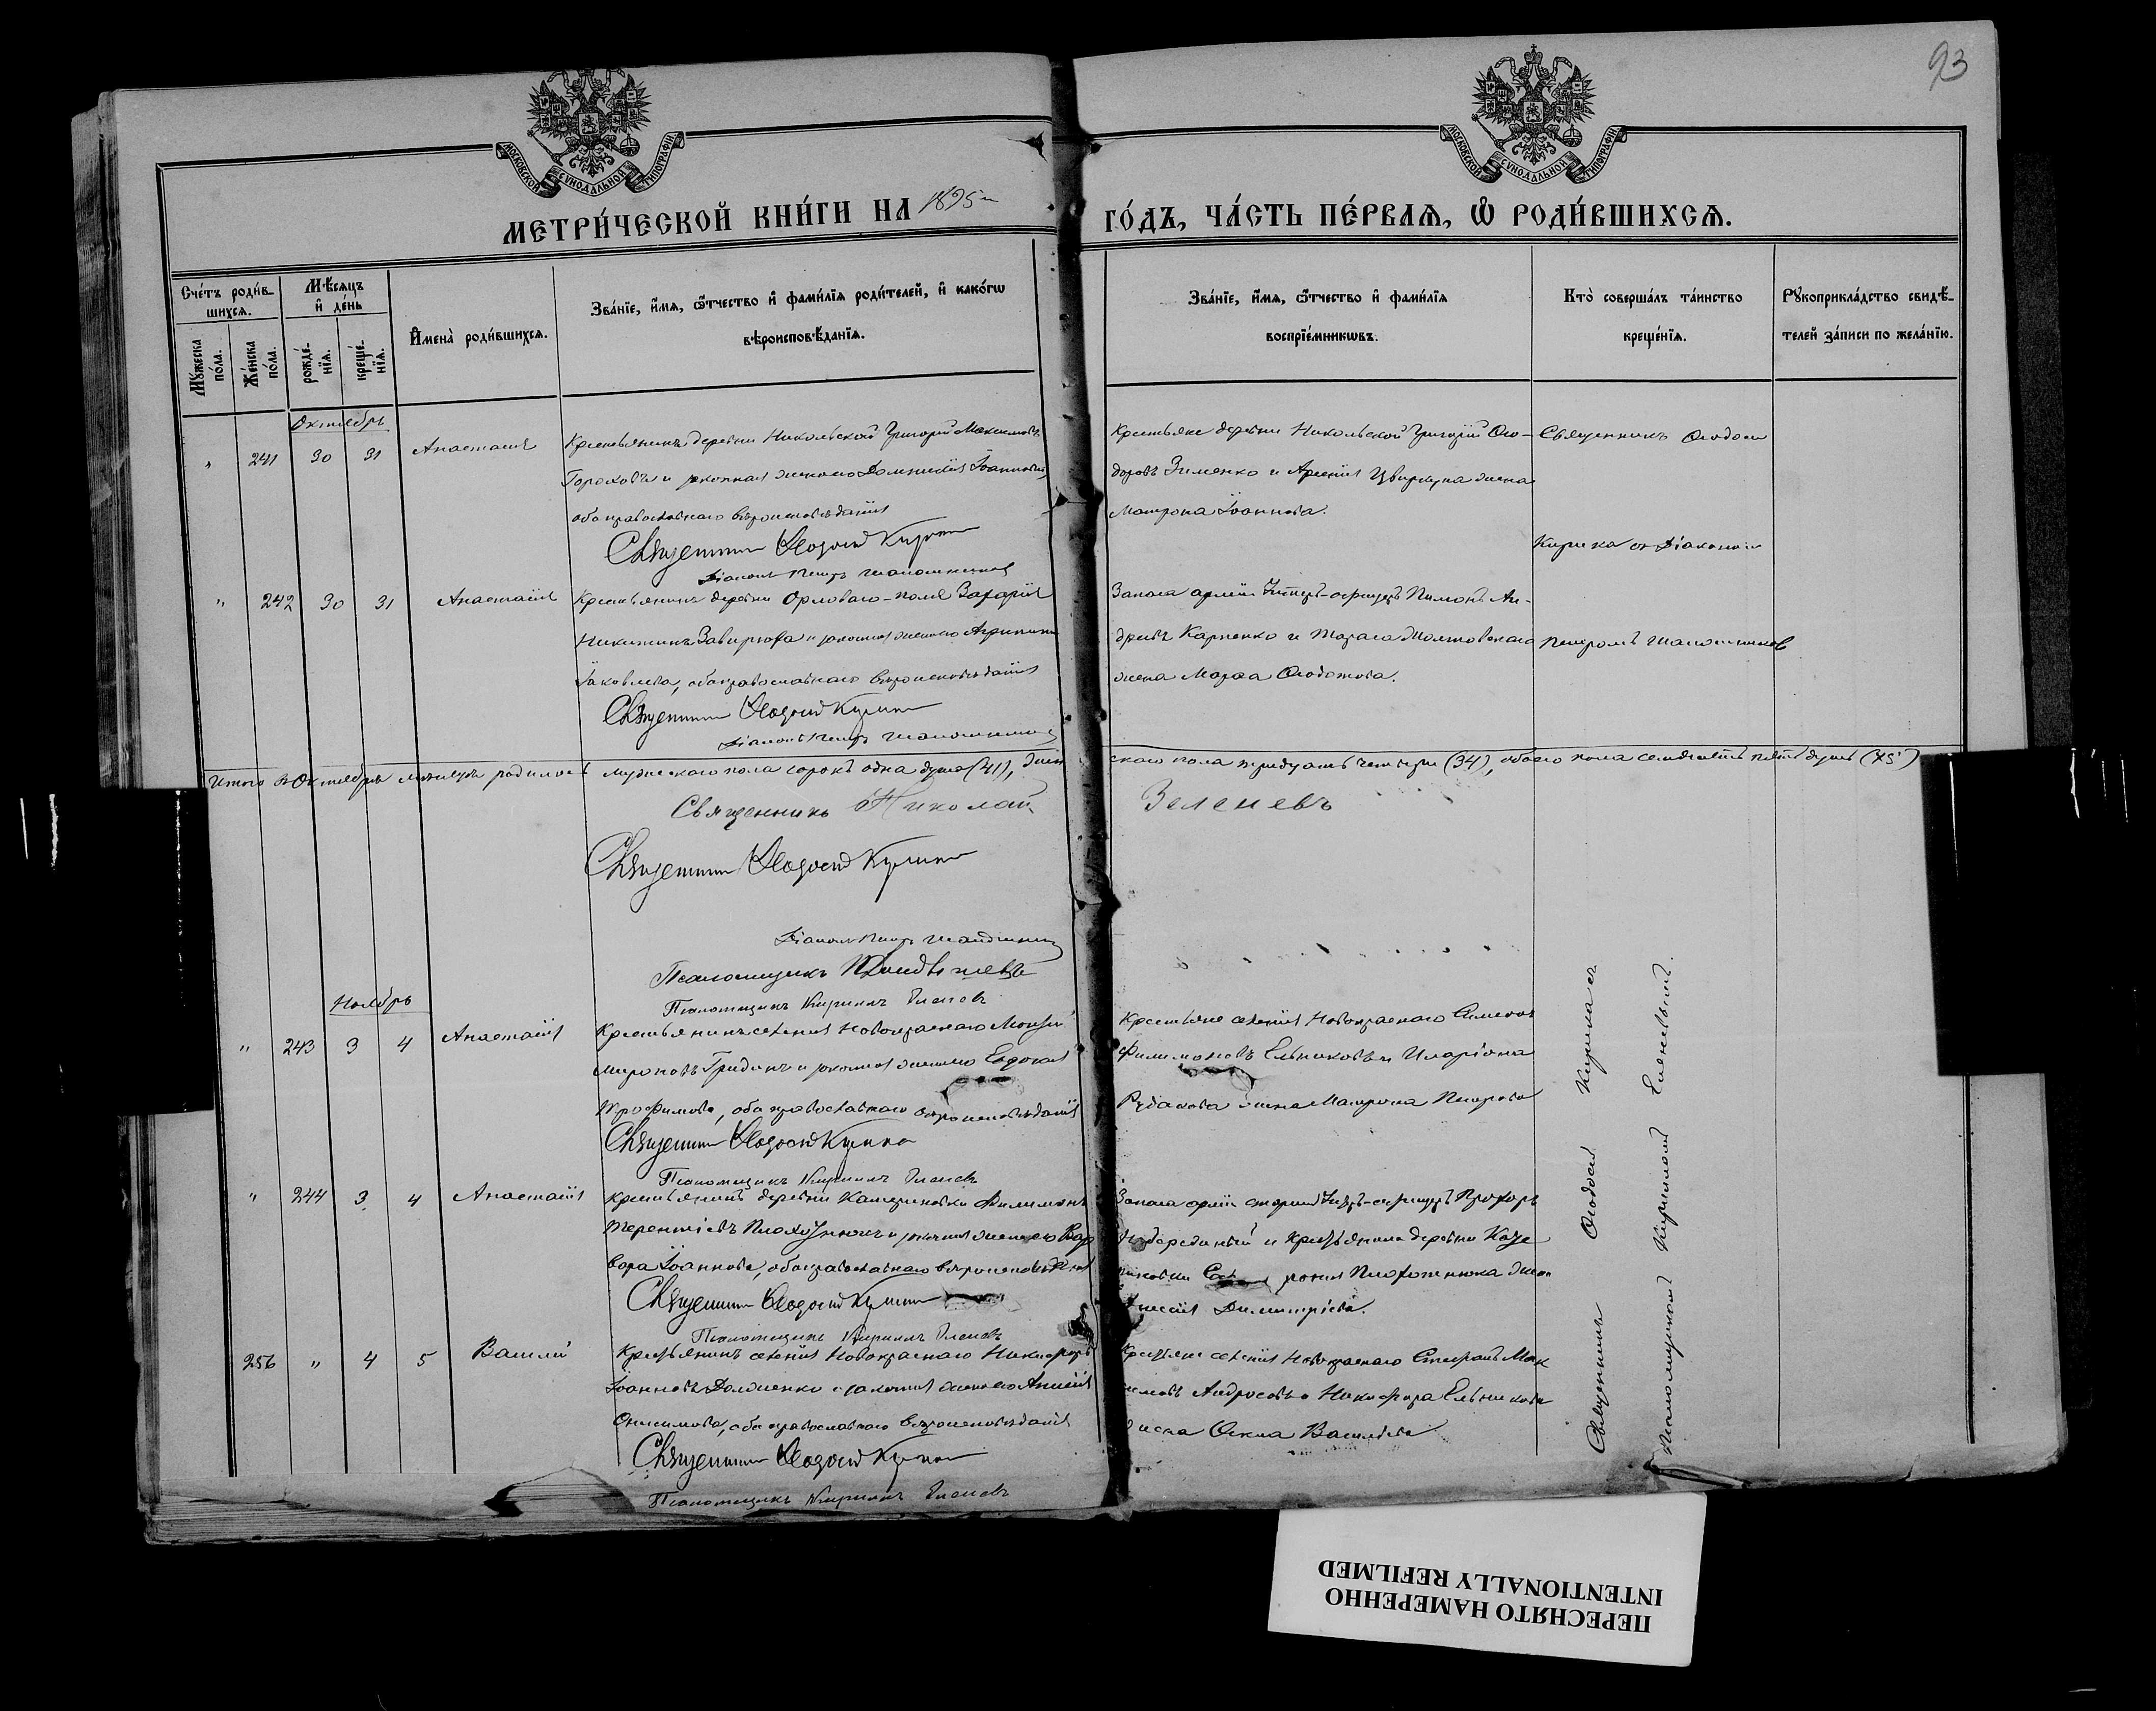 93
МОСКОВСКОЙ СѴНОДАЛЬНОЙ ТИПОГРАФІИ
МОСКОВСКОЙ СѴНОДАЛЬНОЙ ТИПОГРАФІИ
МЕТРИ́ЧЕСКОЙ КНИ́ГИ НА 1895 ГО́ДЪ, ЧА́СТЬ ПЕ́РВАѦ, Ѽ РОДИ́ВШИХСѦ.
Сче́тъ роди́в-
шихсѧ.
Мꙋжеска по́ла.
Же́нска по́ла.
Мѣ́сѧцъ
и҆ де́нь
рожде́-
нїѧ.
креще́-
нїѧ.
И҆мена̀ роди́вшихсѧ.
Зва́нїе, и҆́мѧ, ѻ҆́тчество и҆ фами́лїѧ роди́телей, и҆ како́гѡ
вѣроисповѣ́данїѧ.
Зва́нїе, и҆́мѧ, ѻ҆́тчество и҆ фами́лїѧ
воспрїе́мникѡвъ.
Кто̀ соверша́лъ та́инство
креще́нїѧ.
Рꙋкоприкла́дство свидѣ́-
телей за́писи по жела́нїю.
Октябрь
" 241 30 31 Анастасія
Крестьянинъ деревни Никольской Григорій Максимовъ
Гороховъ и законная жена его Домникія Іоаннова,
оба православнаго вѣроисповѣданія
Священникъ Ѳеодосій Кирика
Діаконъ Петръ
Крестьяне деревни Никольской Григорій Ѳео-
доровъ Зименко и Арсенія Цвиркуна жена
Матрона Іоаннова.
Священникъ Ѳеодосій
Кирика съ Діакономъ
" 242 30 31 Анастасія
Крестьянинъ деревни Орловаго-поля Захарій
Никитинъ Завирюха и законная жена его Агрипина
Іаковлева, оба православнаго вѣроисповѣданія
Священникъ Ѳеодосій Кирика
Діаконъ Петръ
Запаса арміи Унтеръ-офицеръ Пименъ Ан-
дреевъ Карпенко и Тараса Молтовскаго
жена Марѳа Ѳеодотова.
Петромъ
Итого въ Октябрѣ мѣсяцѣ родилось мужескаго пола сорокъ одна душа (41), женскаго пола тридцать четыре (34), обоего пола семьдесятъ пять душъ (75)
Священникъ Николай Зеленевъ
Священникъ Ѳеодосій Кирика
Діаконъ Петръ
Псаломщикъ
Псаломщикъ Кириллъ
Ноябрь
" 243 3 4 Анастасія
Крестьянинъ селенія Новокраснаго Моисей
Мироновъ Гридинъ и законная жена его Евдокія
Трофимова, оба православнаго вѣроисповѣданія
Священникъ Ѳеодосій Кирика
Псаломщикъ Кириллъ
Крестьяне селенія Новокраснаго Симеонъ
Филимоновъ Ельниковъ и Иларіона
Рудакова жена Матрона Петрова
" 244 3 4 Анастасія
Крестьянинъ деревни Катериновки Филимонъ
Терентіевъ и законная жена его Вар
вара Іоаннова, оба православнаго вѣроисповѣданія
Священникъ Ѳеодосій Кирика
Псаломщикъ Кириллъ
Запаса арміи старшій Унтеръ-офицеръ Прохоръ
и Крестьянина деревни Кате
риновки жена
Димитріева.
256 " 4 5 Василій
Крестьянинъ селенія Новокраснаго Никифоръ
Іоанновъ Долженко и законная жена его Анисія
Онисимова, оба православнаго вѣроисповѣданія
Священникъ Ѳеодосій Кирика
Псаломщикъ Кириллъ
Крестьяне селенія Новокраснаго Стефанъ Мак
симовъ Андросовъ и Никифора Ельникова
жена Ѳекла Васильева
Священникъ Ѳеодосій Кирика съ
Псаломщикомъ Кирилломъ
ПЕРЕСНЯТО НАМЕРЕННО
INTENTIONALLY REFILMED